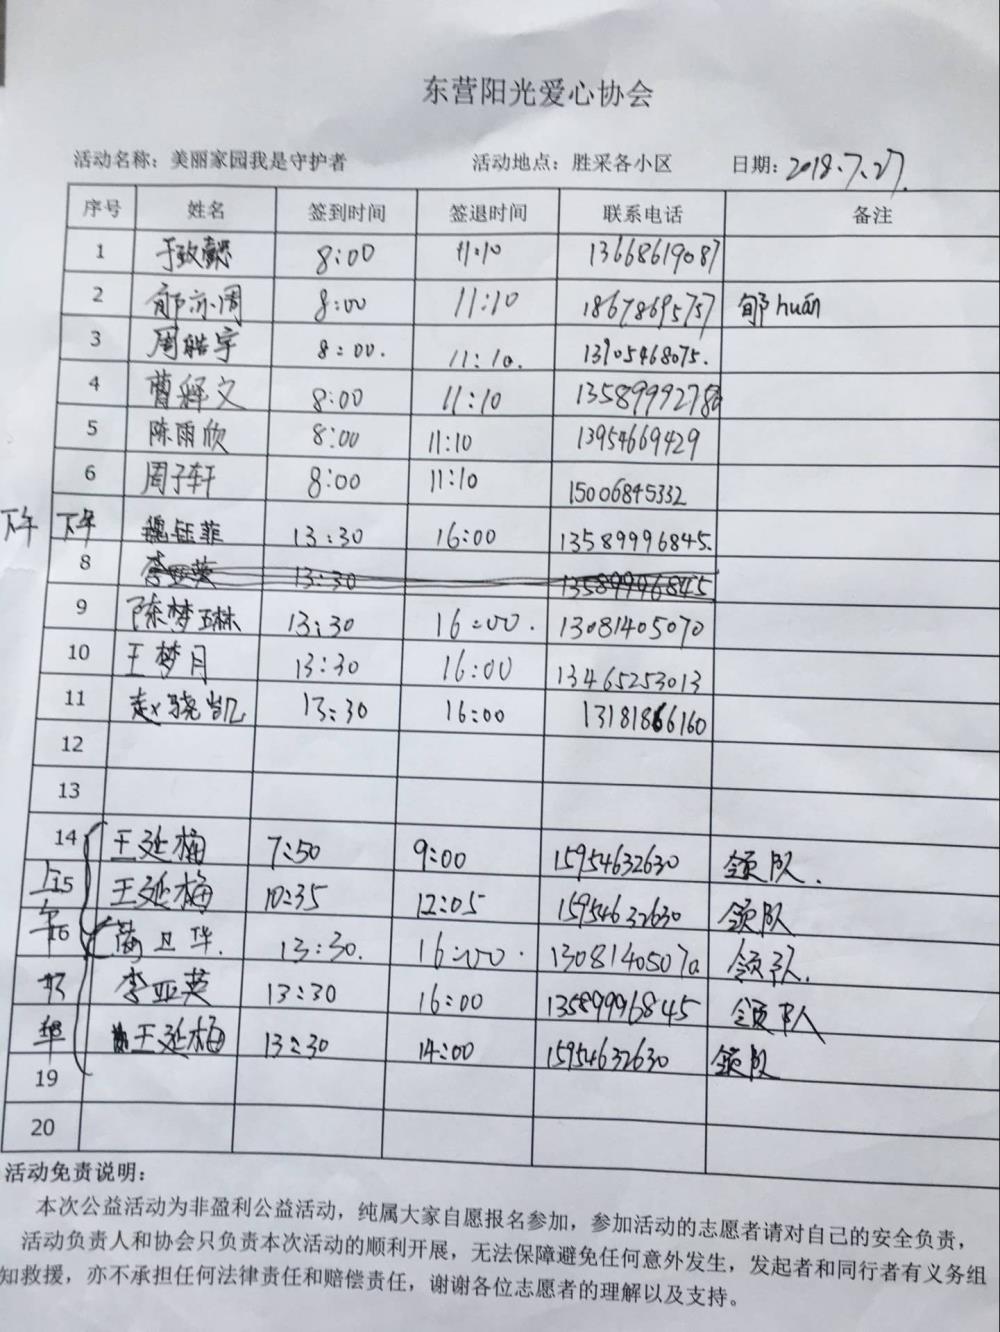 东营阳光爱心协会
活动名称：美丽家园我是守护者 活动地点：胜采各小区 日期：2018.7.27.
序号 姓名 签到时间 签退时间 联系电话 备注
1 于致懿 8:00 11:10 13668619087
2 郇亦周 8:00 11:10 18678695757 郇huán
3 周皓宇 8:00. 11:10. 13905468075.
4 曹释文 8:00 11:10
5 陈雨欣 8:00 11:10 13954669429
6 周子轩 8:00 11:10 15006845332
下午 下午 魏钰菲 13:30 16:00 13589996845.
8 李亚英 13:30 13589996845
9 陈梦琳 13:30 16:00. 13081405070
10 王梦月 13:30 16:00 13465253013
11 赵骁凯 13:30 16:00 13181866160
12
13
14 王延梅 7:50 9:00 15954632630 领队.
上15 王延梅 10:35 12:05 15954632630 领队
午16 卫华. 13:30. 16:00. 13081405070 领队.
李亚英 13:30 16:00 13589996845 领队
王延梅 13:30 14:00 15954632630 领队
19
20
活动免责说明：
本次公益活动为非盈利公益活动，纯属大家自愿报名参加，参加活动的志愿者请对自己的安全负责，
活动负责人和协会只负责本次活动的顺利开展，无法保障避免任何意外发生，发起者和同行者有义务组
知救援，亦不承担任何法律责任和赔偿责任，谢谢各位志愿者的理解以及支持。